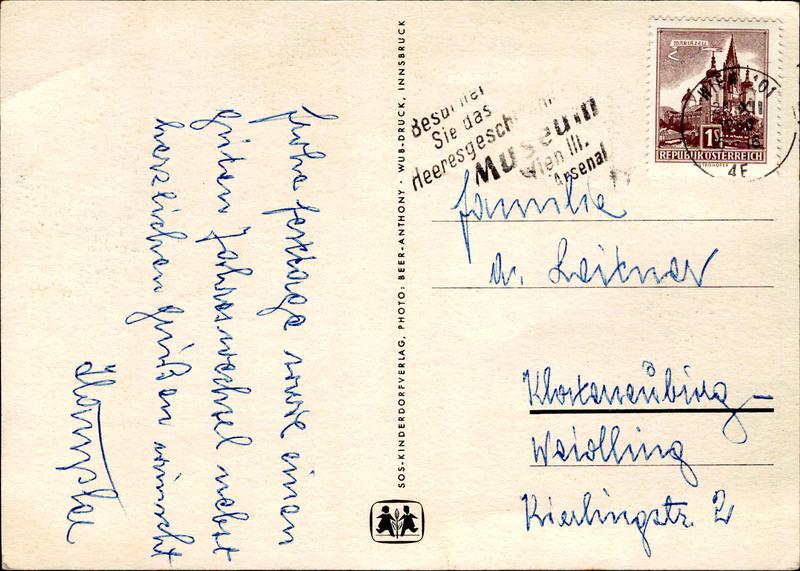 frohe Festtage sowie einen
guten Jahreswechsel nebst
herzlichen Grüßen wünscht
SOS-KINDERDORFVERLAG, PHOTO: BEER-ANTHONY · WUB-DRUCK, INNSBRUCK
Besuchet
Sie das
Heeresgesch
Museum
Wien III.
Arsenal
MARIAZELL
1S
REPUBLIK ÖSTERREICH
WIEN 101
XII
4F
Familie
A. Leitner
Klosterneuburg-
Weidling
Kierlingstr. 2